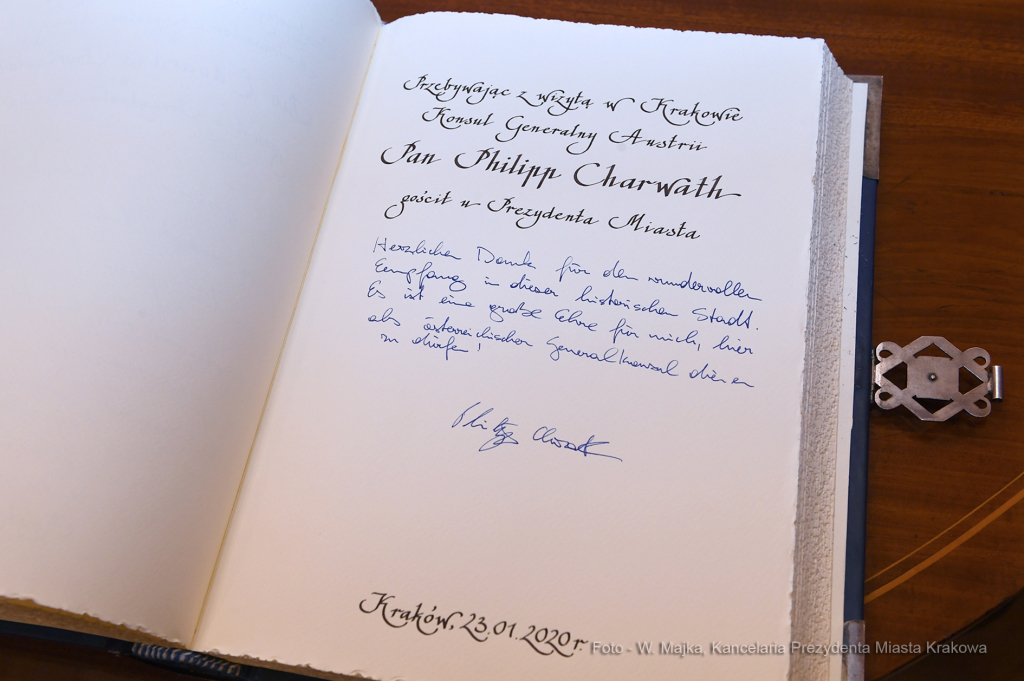 Przebywając z wizytą w Krakowie
Konsul Generalny Austrii
Pan Philipp Charwath
gościł u Prezydenta Miasta
Herzlichen Dank für den wundervollen
Empfang in dieser historischen Stadt.
Es ist eine große Ehre für mich, hier
als österreichischer Generalkonsul dienen
zu dürfen!
Kraków, 23.01.2020 r.
Foto - W. Majka, Kancelaria Prezydenta Miasta Krakowa